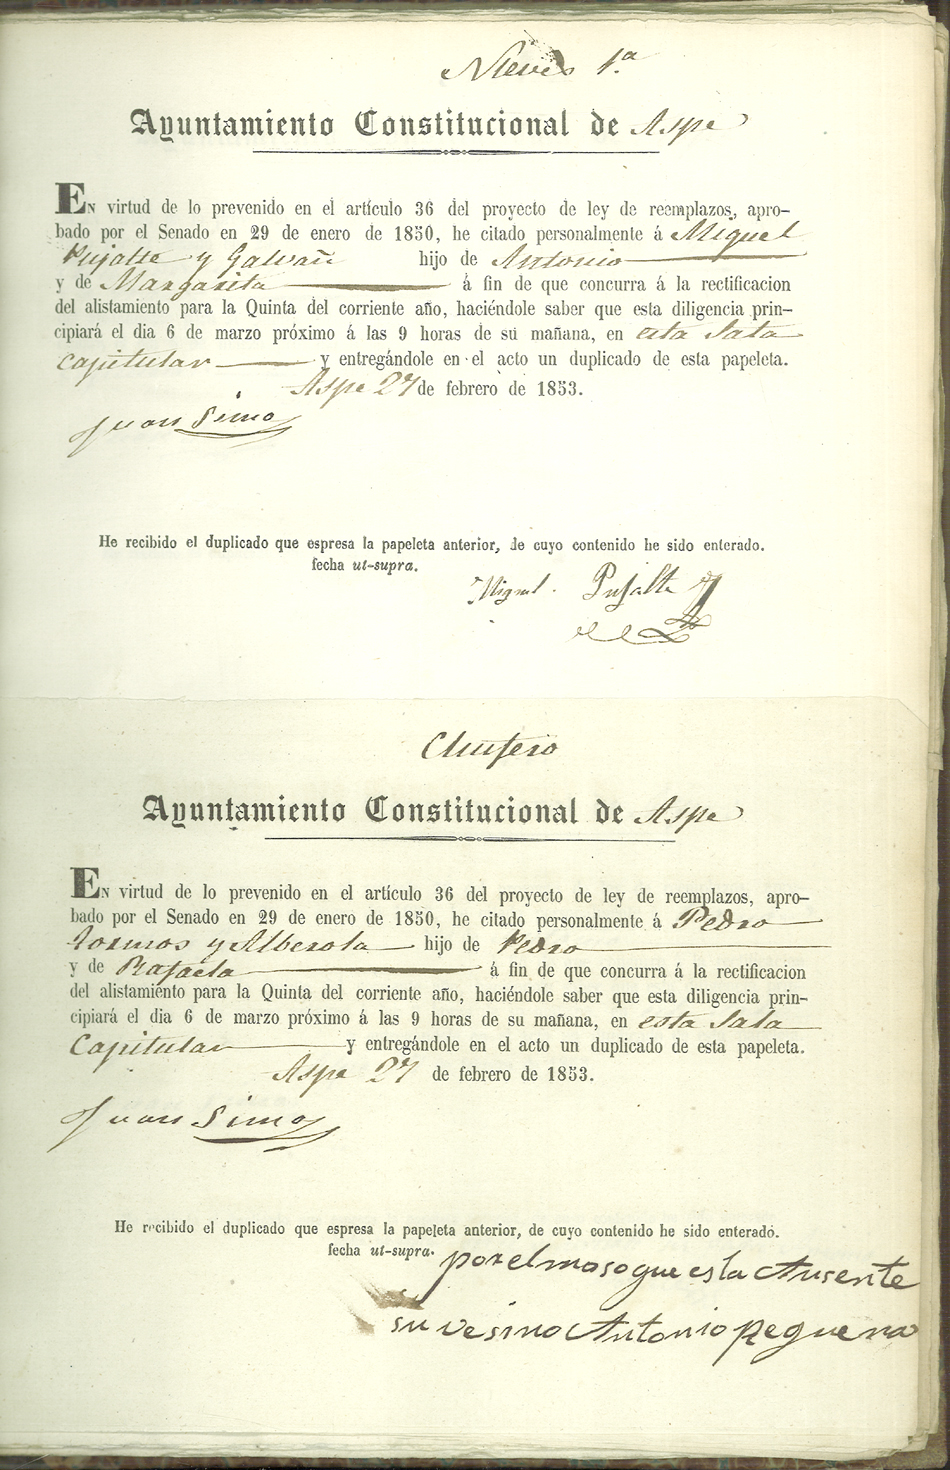 Nieves 1.ª
Ayuntamiento Constitucional de Aspe
En virtud de lo prevenido en el artículo 36 del proyecto de ley de reemplazos, apro-
bado por el Senado en 29 de enero de 1850, he citado personalmente á Miguel
Pujalte y Galvañ hijo de Antonio
y de Margarita á fin de que concurra á la rectificacion
del alistamiento para la Quinta del corriente año, haciéndole saber que esta diligencia prin-
cipiará el dia 6 de marzo próximo á las 9 horas de su mañana, en esta Sala
Capitular y entregándole en el acto un duplicado de esta papeleta.
Aspe 27 de febrero de 1853.
Juan Simo
He recibido el duplicado que espresa la papeleta anterior, de cuyo contenido he sido enterado.
fecha ut-supra.
Miguel Pujalte
Ayuntamiento Constitucional de Aspe
En virtud de lo prevenido en el artículo 36 del proyecto de ley de reemplazos, apro-
bado por el Senado en 29 de enero de 1850, he citado personalmente á Pedro
tormos y Alberola hijo de Pedro
y de Rafaela á fin de que concurra á la rectificacion
del alistamiento para la Quinta del corriente año, haciéndole saber que esta diligencia prin-
cipiará el dia 6 de marzo próximo á las 9 horas de su mañana, en esta Sala
Capitular y entregándole en el acto un duplicado de esta papeleta.
Aspe 27 de febrero de 1853.
Juan Simo
He recibido el duplicado que espresa la papeleta anterior, de cuyo contenido he sido enterado.
fecha ut-supra.
por el moso que esta Ausente
su vesino Antonio peguera